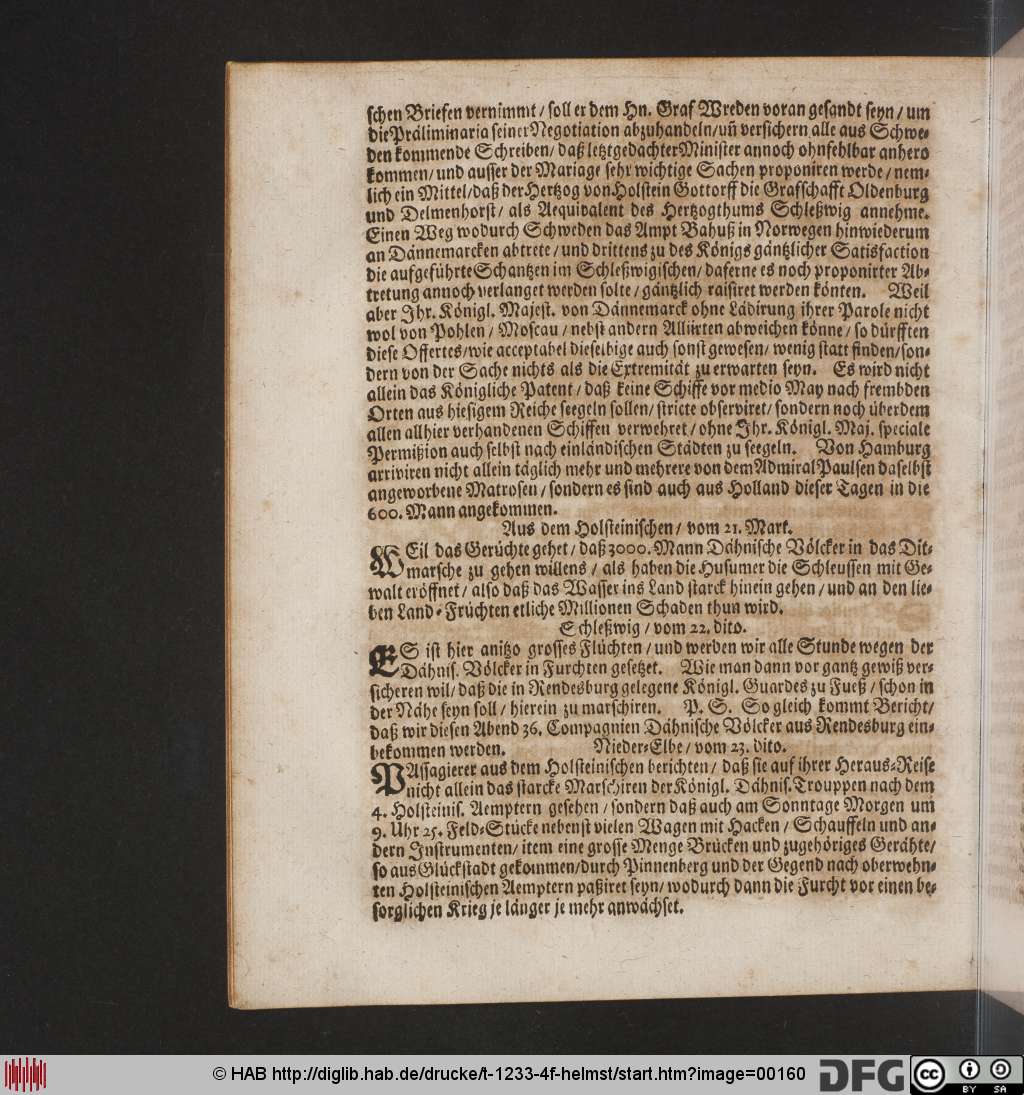 schen Briefen vernimmt / soll er dem Hn. Graf Wreden voran gesandt seyn / um
die Präliminaria seiner Negotiation abzuhandeln / uñ versichern alle aus Schwe-
den kommende Schreiben / daß letztgedachter Minister annoch ohnfehlbar anhero
kommen / und ausser der Mariage sehr wichtige Sachen proponiren werde / nem-
lich ein Mittel / daß der Hertzog von Holstein Gottorff die Grafschafft Oldenburg
und Delmenhorst / als Aequivalent des Hertzogthums Schleßwig annehme.
Einen Weg wodurch Schweden das Ampt Bahuß in Norwegen hinwiederum
an Dännemarcken abtrete / und drittens zu des Königs gäntzlicher Satisfaction
die aufgeführte Schantzen im Schleßwigischen / daferne es noch proponirter Ab-
tretung annoch verlanget werden solte / gäntzlich raisiret werden könten. Weil
aber Ihr. Königl. Majest. von Dännemarck ohne Lädirung ihrer Parole nicht
wol von Pohlen / Moscau / nebst andern Alliirten abweichen könne / so dürfften
diese Offertes / wie acceptabel dieselbige auch sonst gewesen / wenig statt finden / son-
dern von der Sache nichts als die Extremität zu erwarten seyn. Es wird nicht
allein das Königliche Patent / daß keine Schiffe vor medio May nach frembden
Orten aus hiesigem Reiche seegeln sollen / stricte observiret / sondern noch überdem
allen allhier verhandenen Schiffen verwehret / ohne Ihr. Königl. Maj. speciale
Permißion auch selbst nach einländischen Städten zu seegeln. Von Hamburg
arriviren nicht allein täglich mehr und mehrere von dem Admiral Paulsen daselbst
angeworbene Matrosen / sondern es sind auch aus Holland dieser Tagen in die
600. Mann angekommen.
Aus dem Holsteinischen / vom 21. Mart.
WEil das Gerüchte gehet / daß 3000. Mann Dähnische Völcker in das Dit-
marsche zu gehen willens / als haben die Husumer die Schleussen mit Ge-
walt eröffnet / also daß das Wasser ins Land starck hinein gehen / und an den lie-
ben Land-Früchten etliche Millionen Schaden thun wird.
Schleßwig / vom 22. dito.
ES ist hier anitzo grosses Flüchten / und werden wir alle Stunde wegen der
Dähnis. Völcker in Furchten gesetzet. Wie man dann vor gantz gewiß ver-
sicheren wil / daß die in Rendesburg gelegene Königl. Guardes zu Fueß / schon in
der Nähe seyn soll / hierein zu marschiren. P. S. So gleich kommt Bericht /
daß wir diesen Abend 36. Compagnien Dähnische Völcker aus Rendesburg ein-
bekommen werden. Nieder-Elbe / vom 23. dito.
PAssagierer aus dem Holsteinischen berichten / daß sie auf ihrer Heraus-Reise
nicht allein das starcke Marschiren der Königl. Dähnis. Trouppen nach dem
4. Holsteinis. Aemptern gesehen / sondern daß auch am Sonntage Morgen um
9. Uhr 25. Feld-Stücke nebenst vielen Wagen mit Hacken / Schauffeln und an-
dern Instrumenten / item eine grosse Menge Brücken und zugehöriges Gerähte /
so aus Glückstadt gekommen / durch Pinnenberg und der Gegend nach oberwehn-
ten Holsteinischen Aemptern paßiret seyn / wodurch dann die Furcht vor einen be-
sorglichen Krieg je länger je mehr anwächset.
© HAB http://diglib.hab.de/drucke/t-1233-4f-helmst/start.htm?image=00160
DFG
cc BY SA